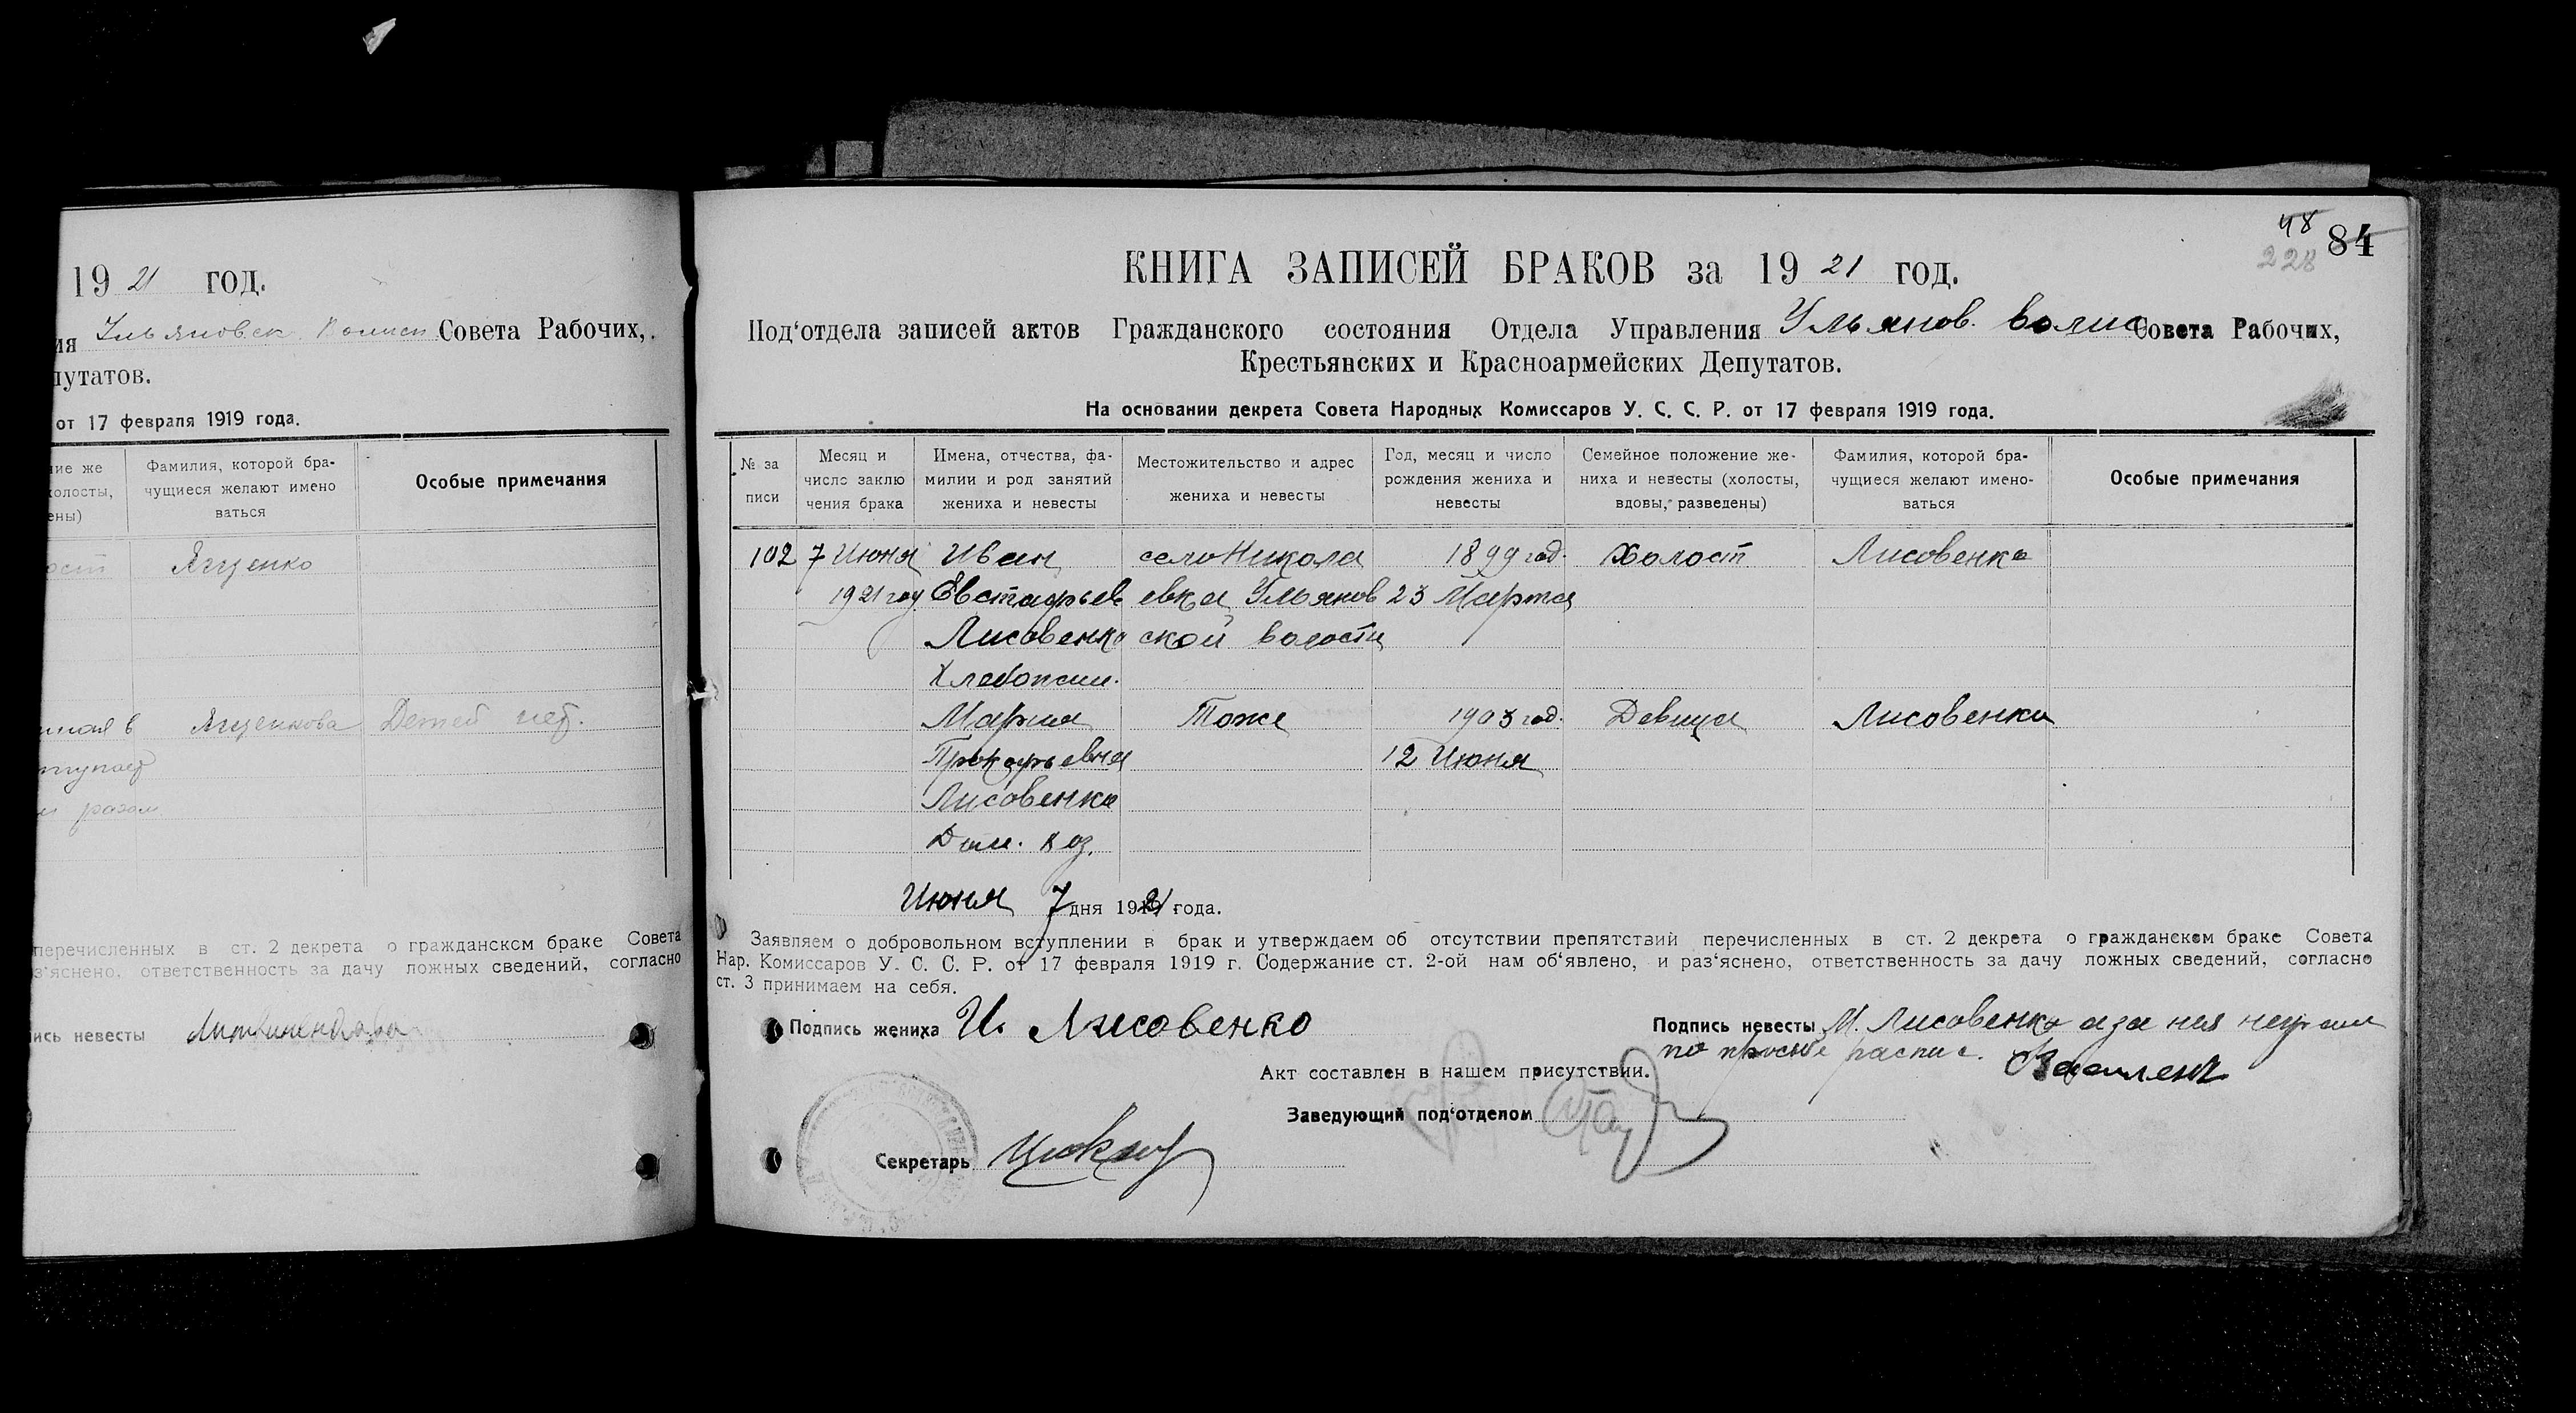 19 21 год.
ия Ульяновск Волисп Совета Рабочих,
путатов.
от 17 февраля 1919 года.
ние же
холосты,
ены)
Фамилия, которой бра-
чущиеся желают имено
ваться
Особые примечания
ост Ященко
нная в Ященкова Детей нет.
ступает
м разом
перечисленных в ст. 2 декрета о гражданском браке Совета
з'яснено, ответственность за дачу ложных сведений, согласно
ись невесты
48 84
228
КНИГА ЗАПИСЕЙ БРАКОВ за 19 21 год.
Под'отдела записей актов Гражданского состояния Отдела Управления Ульянов. волис Совета Рабочих,
Крестьянских и Красноармейских Депутатов.
На основании декрета Совета Народных Комиссаров У. С. С. Р. от 17 февраля 1919 года.
№ за
писи
Месяц и
число заклю
чения брака
Имена, отчества, фа-
милии и род занятий
жениха и невесты
Местожительство и адрес
жениха и невесты
Год, месяц и число
рождения жениха и
невесты
Семейное положение же-
ниха и невесты (холосты,
вдовы, разведены)
Фамилия, которой бра-
чущиеся желают имено-
ваться
Особые примечания
102 7 Июня Иван село Никола 1899 год. Холост Лисовенко
1921 году Евстафьев евка Ульянов 23 Марта
Лисовенко ской волости
Хлебопаш.
Мария Тоже 1903 год. Девица Лисовенко
Прокофьевна 12 Июня
Лисовенко
Дом. хоз.
Июня 7 дня 1921 года.
Заявляем о добровольном вступлении в брак и утверждаем об отсутствии препятствий перечисленных в ст. 2 декрета о гражданском браке Совета
Нар. Комиссаров У. С. С. Р. от 17 февраля 1919 г. Содержание ст. 2-ой нам об'явлено, и раз'яснено, ответственность за дачу ложных сведений, согласно
ст. 3 принимаем на себя.
Подпись жениха И. Лисовенко
Подпись невесты М. Лисовенко а за нея неграм
по просьбе распис.
Акт составлен в нашем присутствии.
Заведующий под'отделом
Секретарь